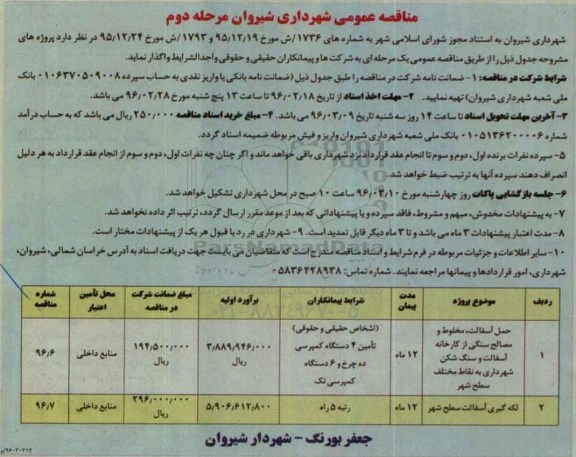 مناقصه عمومی شهرداری شیروان مرحله دوم
شهرداری شیروان به استناد مجوز شورای اسلامی شهر به شماره های ۱۷۳۶/ش مورخ ۹۵/۱۲/۱۹ و ۱۷۹۳/ش مورخ ۹۵/۱۲/۲۴ در نظر دارد پروژه های
مشروحه جدول ذیل را از طریق مناقصه عمومی یک مرحله ای به شرکت ها و پیمانکاران حقیقی و حقوقی واجدالشرایط واگذار نماید.
شرایط شرکت در مناقصه: ۱- ضمانت نامه شرکت در مناقصه را طبق جدول ذیل (ضمانت نامه بانکی یا واریز نقدی به حساب سپرده ۰۱۰۶۳۷۰۵۰۹۰۰۸ بانک
ملی شعبه شهرداری شیروان) تهیه نمایید. ۲- مهلت اخذ اسناد از تاریخ ۹۶/۰۲/۱۸ تا ساعت ۱۳ پنج شنبه مورخ ۹۶/۰۲/۲۸ می باشد.
۳- آخرین مهلت تحویل اسناد تا ساعت ۱۴ روز سه شنبه تاریخ ۹۶/۰۳/۰۹ می باشد. ۴- مبلغ خرید اسناد مناقصه ۲۵۰/۰۰۰ ریال می باشد که به حساب درآمد
شماره ۰۱۰۵۱۳۶۲۰۰۰۰۶ بانک ملی شعبه شهرداری شیروان واریز و فیش مربوطه ضمیمه اسناد گردد.
۵- سپرده نفرات برنده اول، دوم و سوم تا انجام عقد قرارداد نزد شهرداری باقی خواهد ماند و اگر چنان چه نفرات اول، دوم و سوم از انجام عقد قرارداد به هر دلیل
انصراف دهند سپرده آنها به ترتیب ضبط خواهد شد.
۶- جلسه بازگشایی پاکات روز چهارشنبه مورخ ۹۶/۰۳/۱۰ ساعت ۱۰ صبح در محل شهرداری تشکیل خواهد شد.
۷- به پیشنهادات مخدوش، مبهم و مشروط، فاقد سپرده و یا پیشنهاداتی که بعد از موعد مقرر ارسال گردد، ترتیب اثر داده نخواهد شد.
۸- مدت اعتبار پیشنهادات ۳ ماه می باشد و تا ۳ ماه دیگر قابل تمدید است. ۹- شهرداری در رد یا قبول هر یک از پیشنهادات مختار است.
۱۰- سایر اطلاعات و جزئیات مربوطه در فرم شرایط و اسناد مناقصه مندرج است که متقاضیان می بایست جهت دریافت اسناد به آدرس خراسان شمالی، شیروان،
شهرداری، امور قراردادها و پیمانها مراجعه نمایند. شماره تماس: ۰۵۸۳۶۲۲۸۹۳۸
ردیف موضوع پروژه مدت پیمان شرایط پیمانکاران برآورد اولیه مبلغ ضمانت شرکت در مناقصه محل تأمین اعتبار شماره مناقصه
۱ حمل آسفالت، مخلوط و مصالح سنگی از کارخانه آسفالت و سنگ شکن شهرداری به نقاط مختلف سطح شهر ۱۲ ماه (اشخاص حقیقی و حقوقی) تأمین ۴ دستگاه کمپرسی ده چرخ و ۶ دستگاه کمپرسی تک ۳/۸۸۹/۹۴۶/۰۰۰ ریال ۱۹۴/۵۰۰/۰۰۰ ریال منابع داخلی ۹۶/۶
۲ لکه گیری آسفالت سطح شهر ۱۲ ماه رتبه ۵ راه ۵/۹۰۶/۶۱۲/۸۰۰ ۲۹۶/۰۰۰/۰۰۰ ریال منابع داخلی ۹۶/۷
جعفر بورنگ - شهردار شیروان